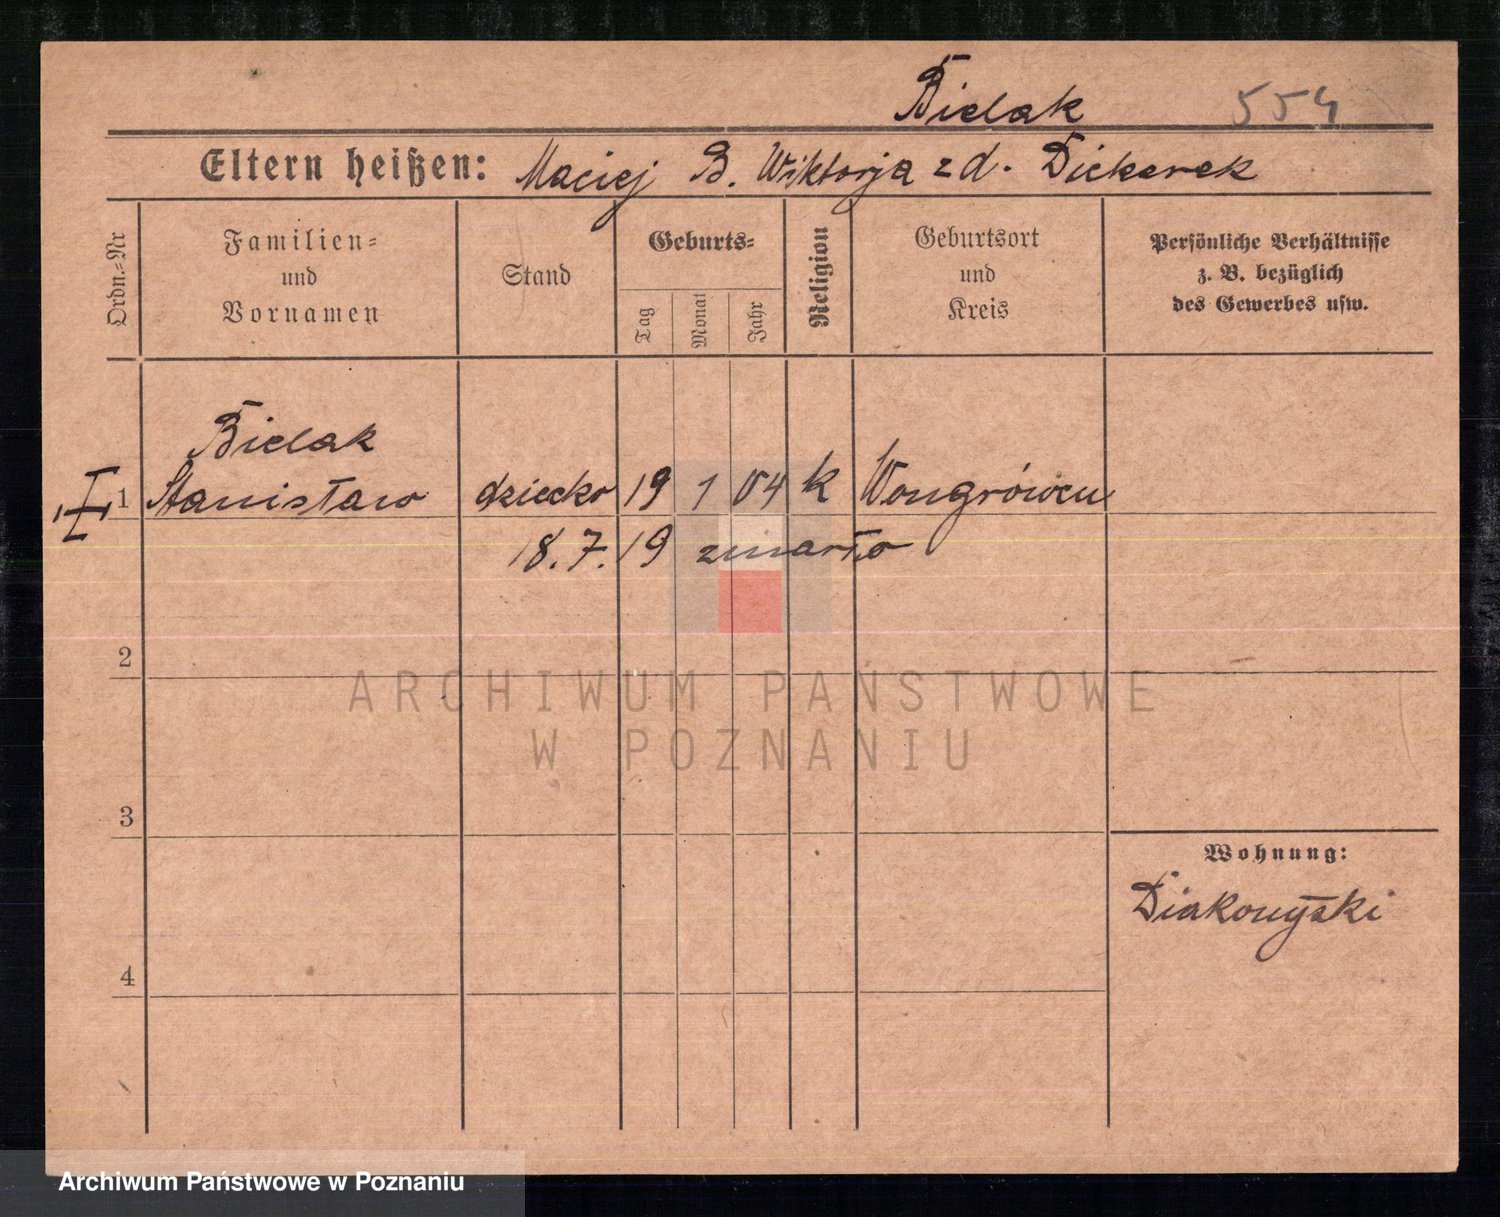 Bielak 554
Eltern heißen: Maciej B. Wiktorja z d. Dickerek
Ordn.-Nr
Familien-
und
Vornamen
Stand
Geburts-
Tag
Monat
Jahr
Religion
Geburtsort
und
Kreis
Persönliche Verhältnisse
z. B. bezüglich
des Gewerbes usw.
Bielak
1 Stanisław dziecko 19 1 04 k Wongrówcu
18.7.19 zmarło
2
ARCHIWUM PAŃSTWOWE
W POZNANIU
3
Wohnung:
Diakonyski
4
Archiwum Państwowe w Poznaniu